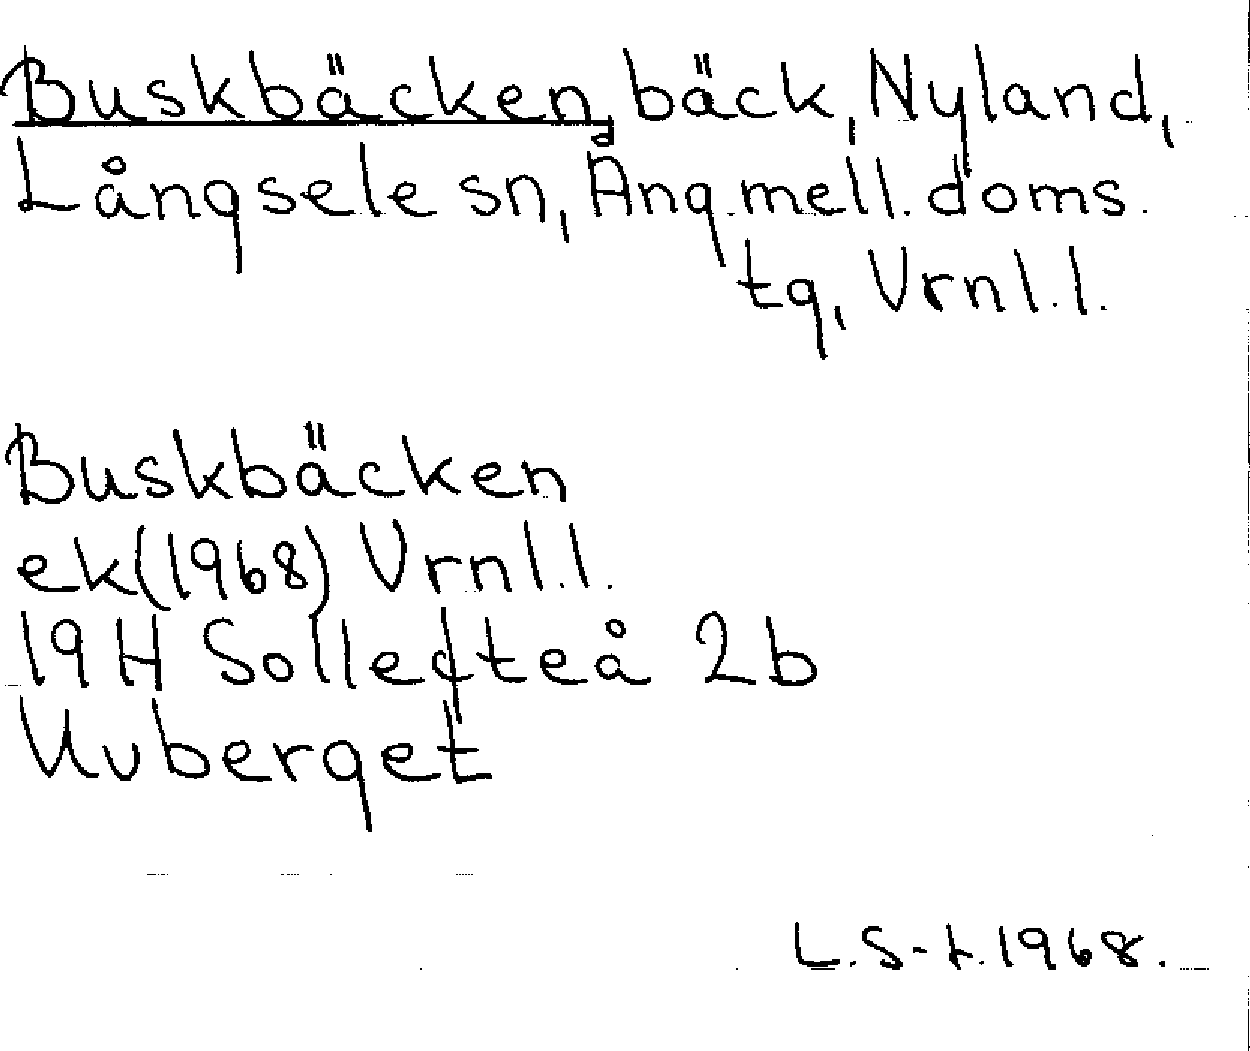 Buskbäcken, bäck, Nyland,
Långsele sn, Ång. mell. doms.
tg, Vrnl.l.
Buskbäcken
ek(1968) Vrnl.l.
19H Sollefteå 2b
Uvberget
L.S-t.1968.